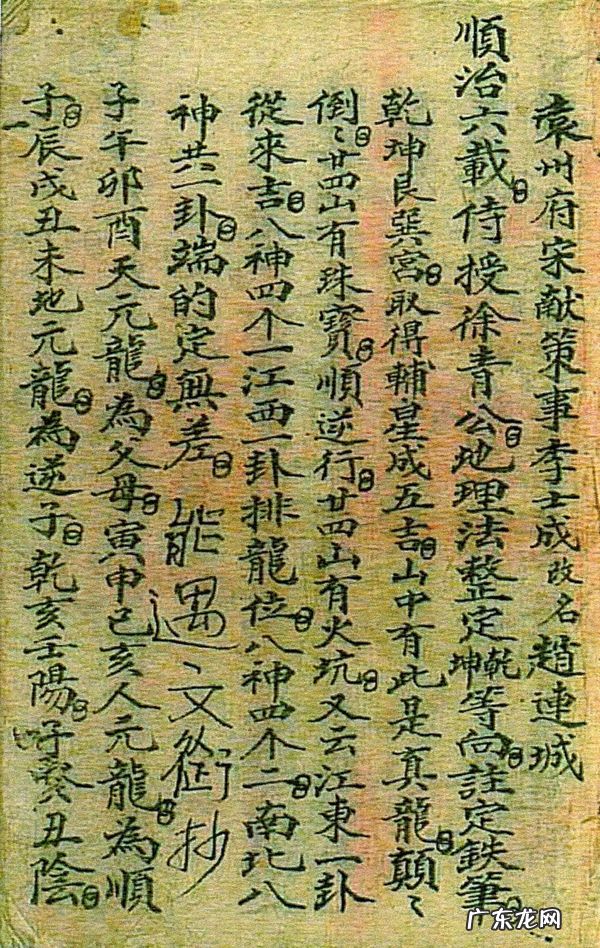 袁州府宋献策事李士成改名趙連城
順治六載侍授徐青公地理法整定乾坤等向註定鉄筆
乾坤艮巽宮取得輔星成五吉山中有此是真龍顛〻
倒〻廿四山有珠寶順逆行廿四山有火坑又云江東一卦
從來吉八神四个一江西一卦排龍位八神四个二南北八
神共一卦端的定無差能遇文衡抄
子午卯酉天元龍為父母寅申巳亥人元龍為順
子辰戌丑未地元龍為逆子乾亥壬陽癸丑陰
广东龙网